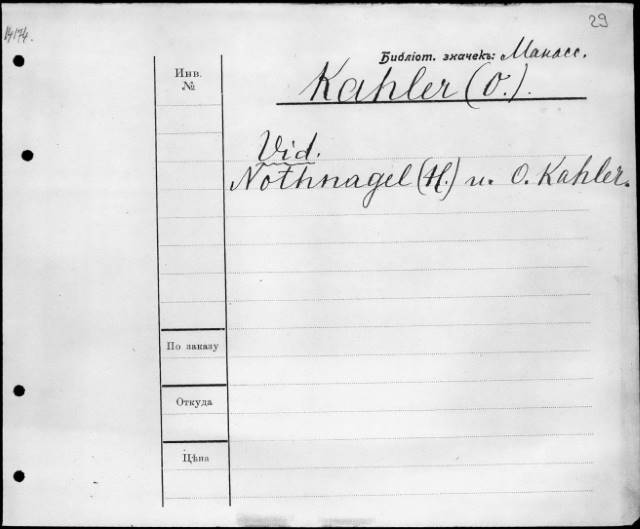 29
14174.
Библіот. значекъ: Манасс.
Инв. №
Kahler (O.).
Vid.
Nothnagel (H.) u. O. Kahler.
По заказу
Откуда
Цѣна